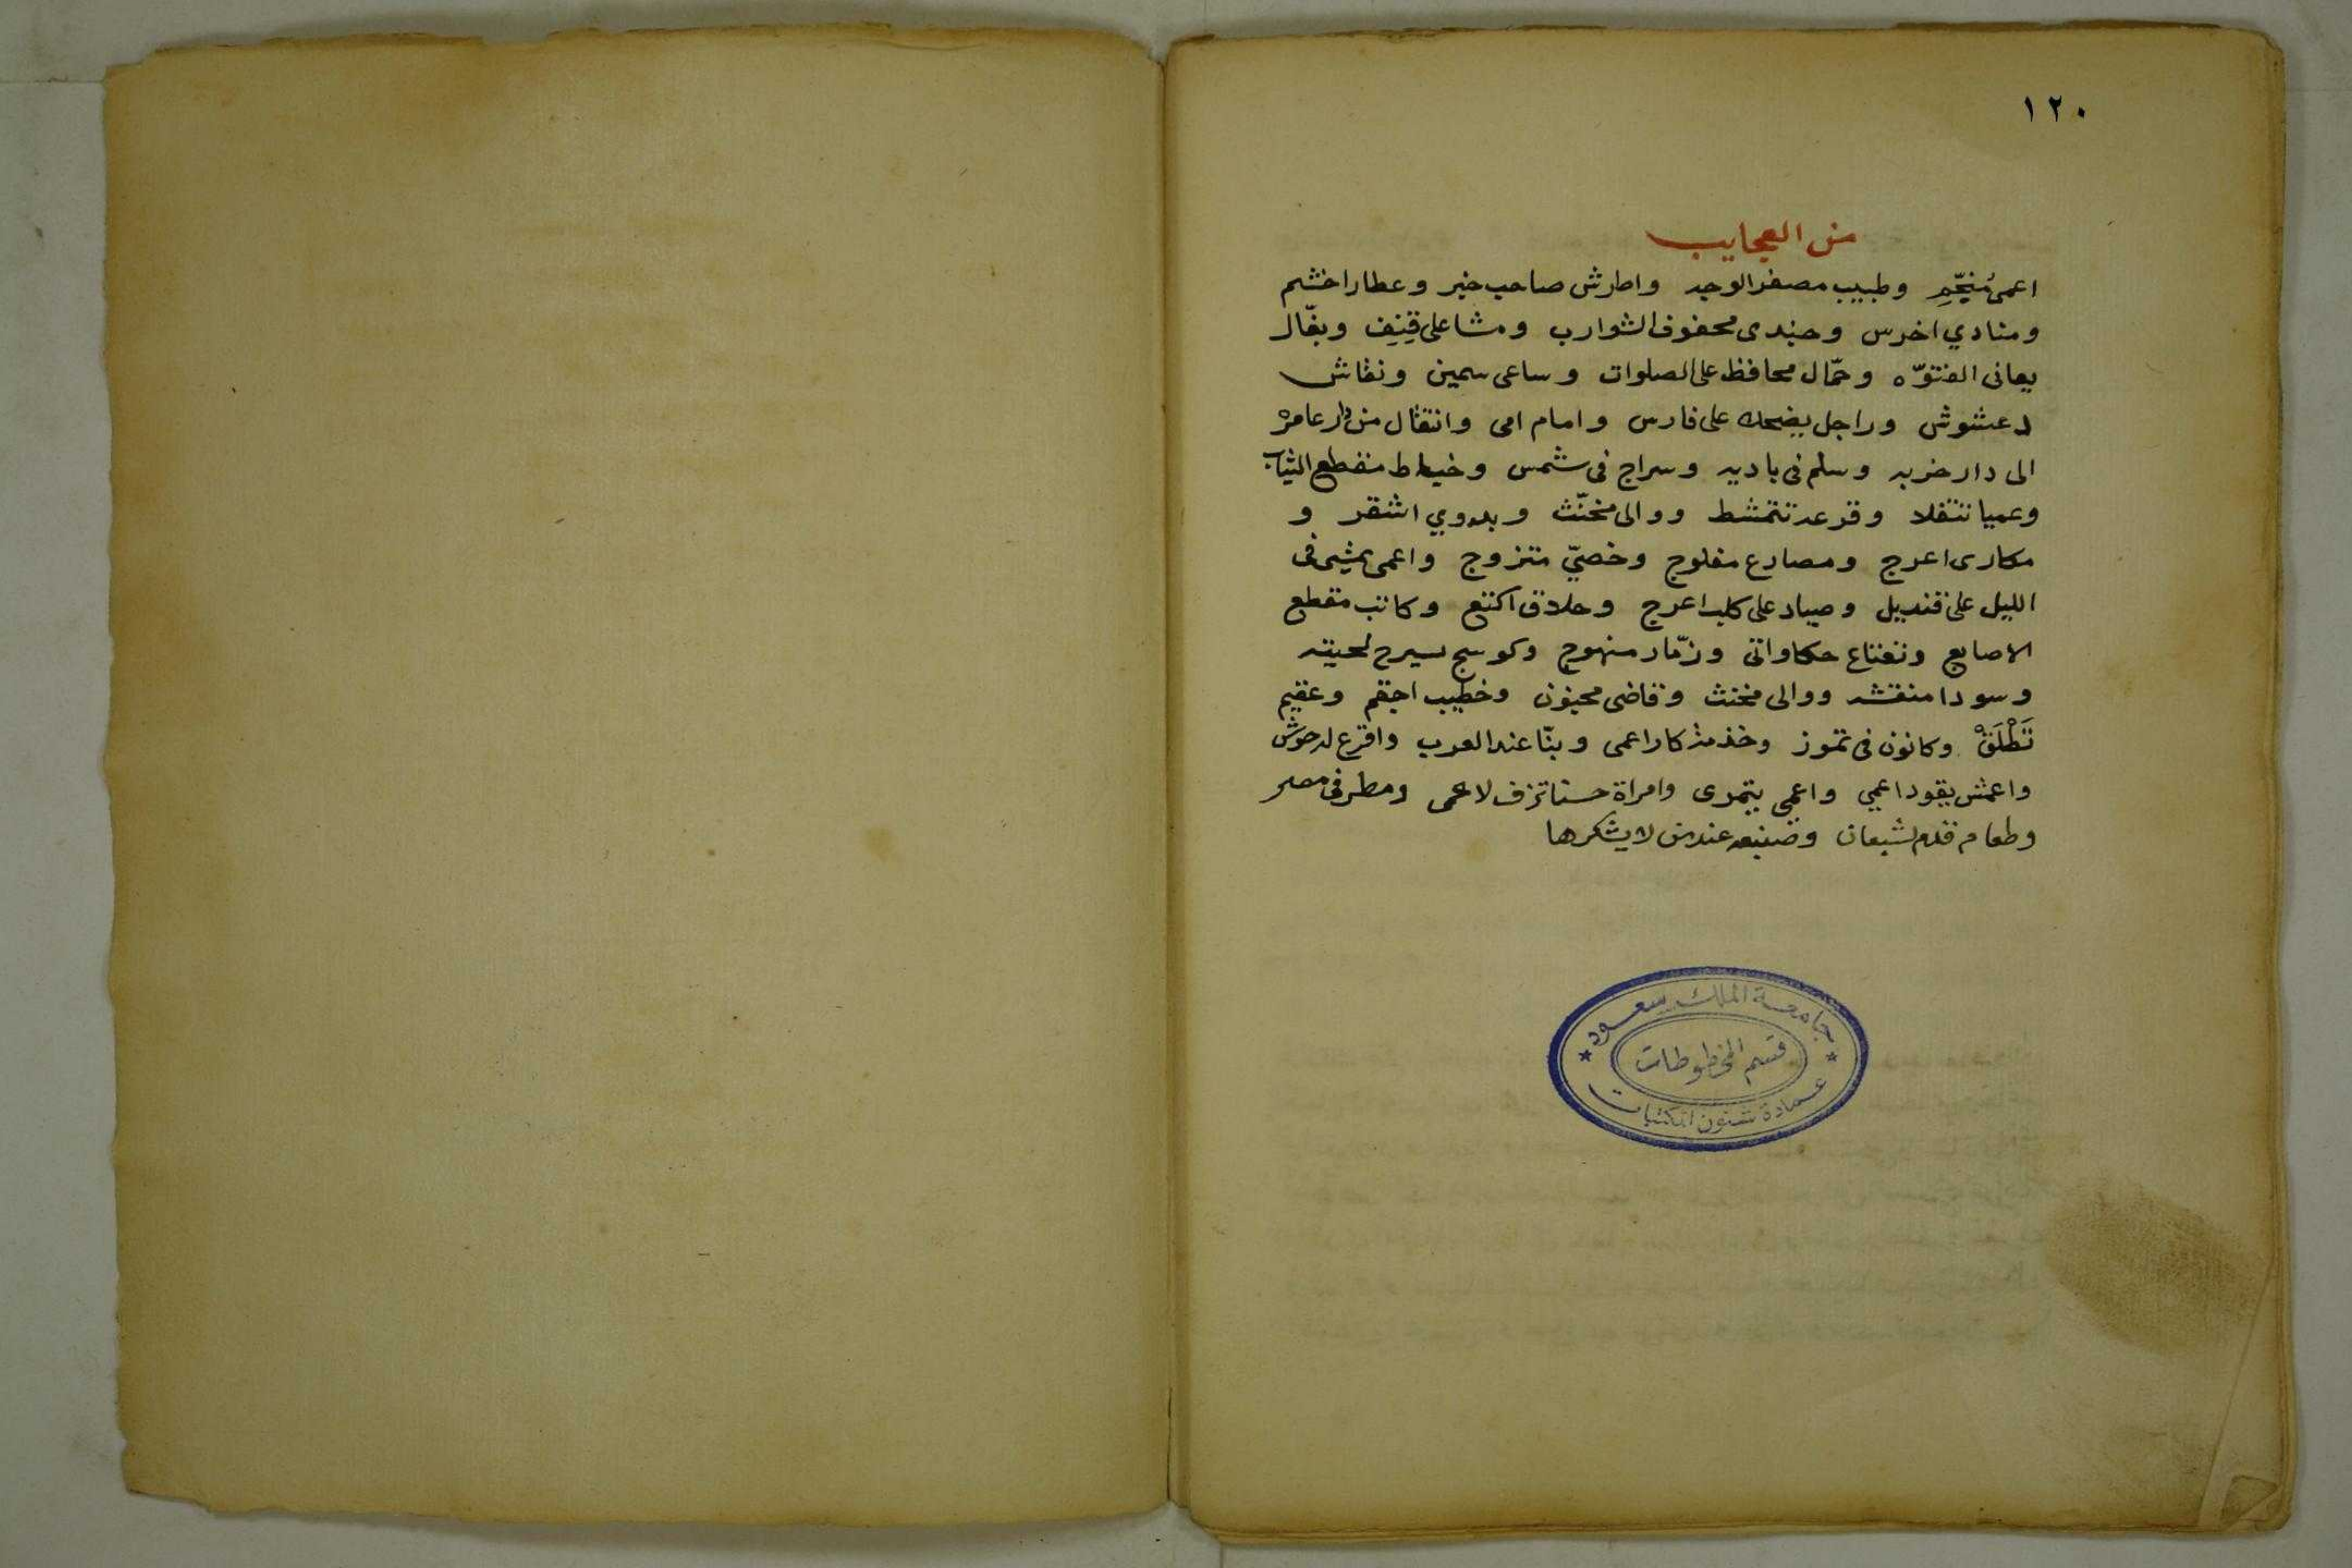 ١٢٠
من العجايب
اعمى مُنجّمِ وطبيب مصفر الوجه واطرش صاحب خبر وعطار اخشم
ومنادي اخرس وجندى محفوف الشوارب ومشاعلى قِنِف وبغّال
يعانى الفتوّه وحمّال محافظ على الصلوات وساعى سمين ونقاش
دعشوش وراجل يضحك على فارس وامام امى وانتقال من دار عامره
الى دار خربه وسلم فى باديه وسراج فى شمس وخياط منقطع الثياب
وعميا تتقلا وقرعه تتمشط ووالى مخنّث وبدوي اشقر و
مكارى اعرج ومصارع مفلوج وخصيّ متزوج واعمى يمشى فى
الليل على قنديل وصياد على كلب اعرج وحلاق اكتع وكاتب مقطع
الاصابع حكاواتى وزمّار منهوج وكوسج يسرح لحيته
وسودا منقشه ووالى مخنث وقاضى مجنون وخطيب اجقم وعقيم
تَطْلَقْ وكانون فى تموز وخذ مذكارا عمى وبنّا عند العرب واقرع له حوش
واعمش يقود اعمي واعمى يتمرى وامراة حسنا تزف لاعمى ومطر فى مصر
وطعام قدم لشبعان وصنيعه عند من لا يشكرها
جامعة الملك سعود
قسم المخطوطات
عمادة شئون المكتبات